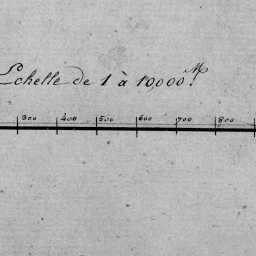 Echelle de 1 à 10,000 M.
300 400 500 600 700 800